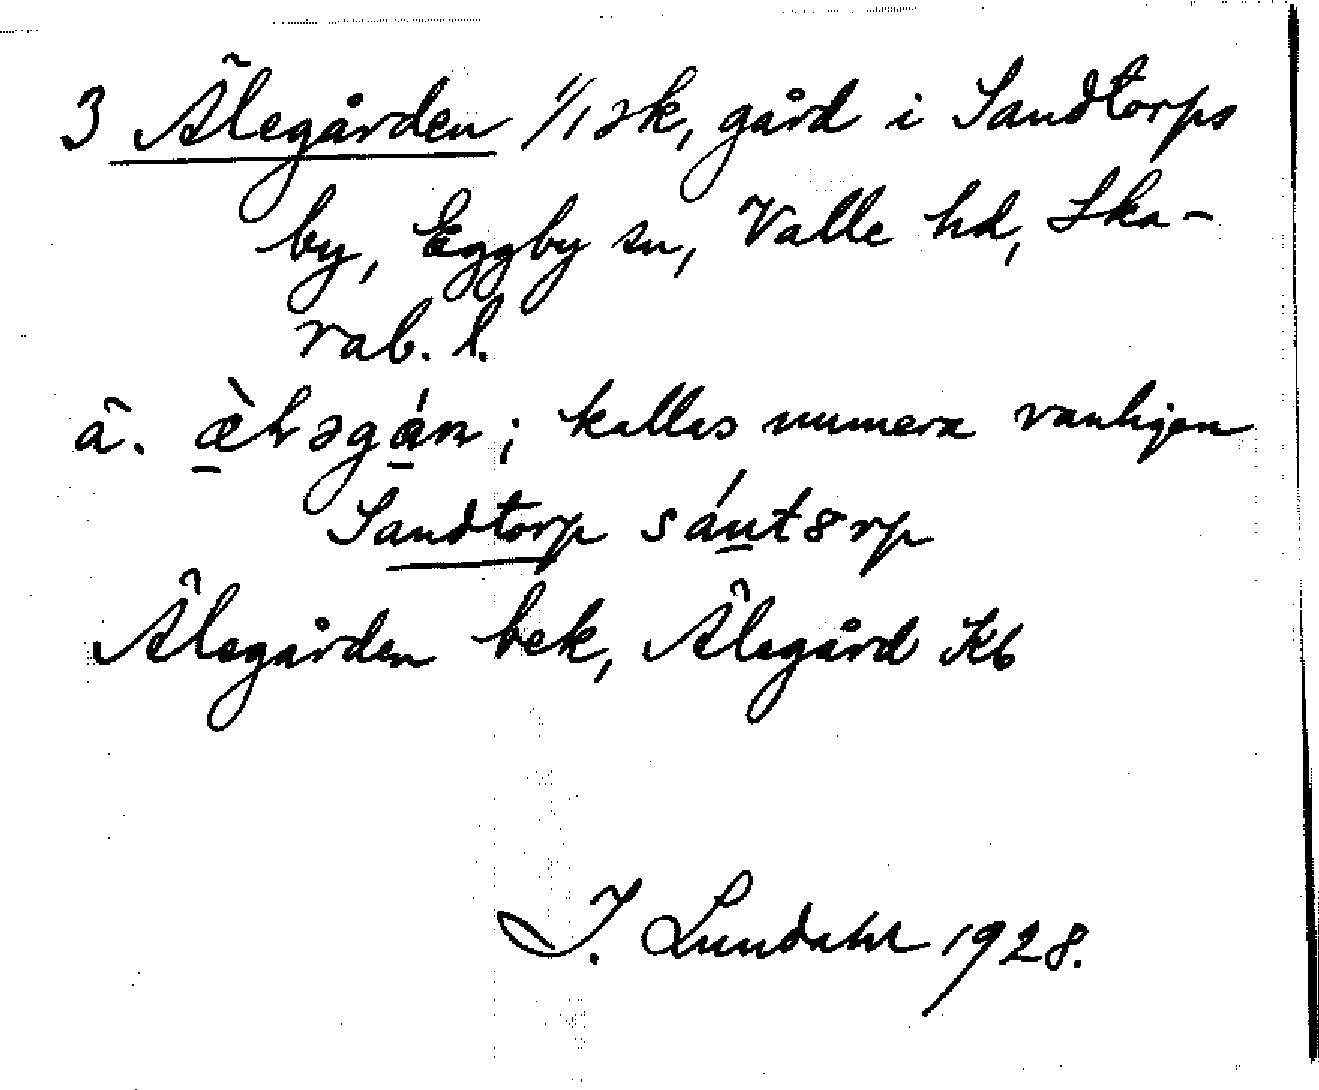 3 Älegården 1/12 sk, gård i Sandtorps
by, Eggby sn, Valle hd, Ska-
rab. l.
ä. ; kallas numera vanligen
Sandtorp
Älegården bek, Älegård Kb
I. Lundahl 1928.